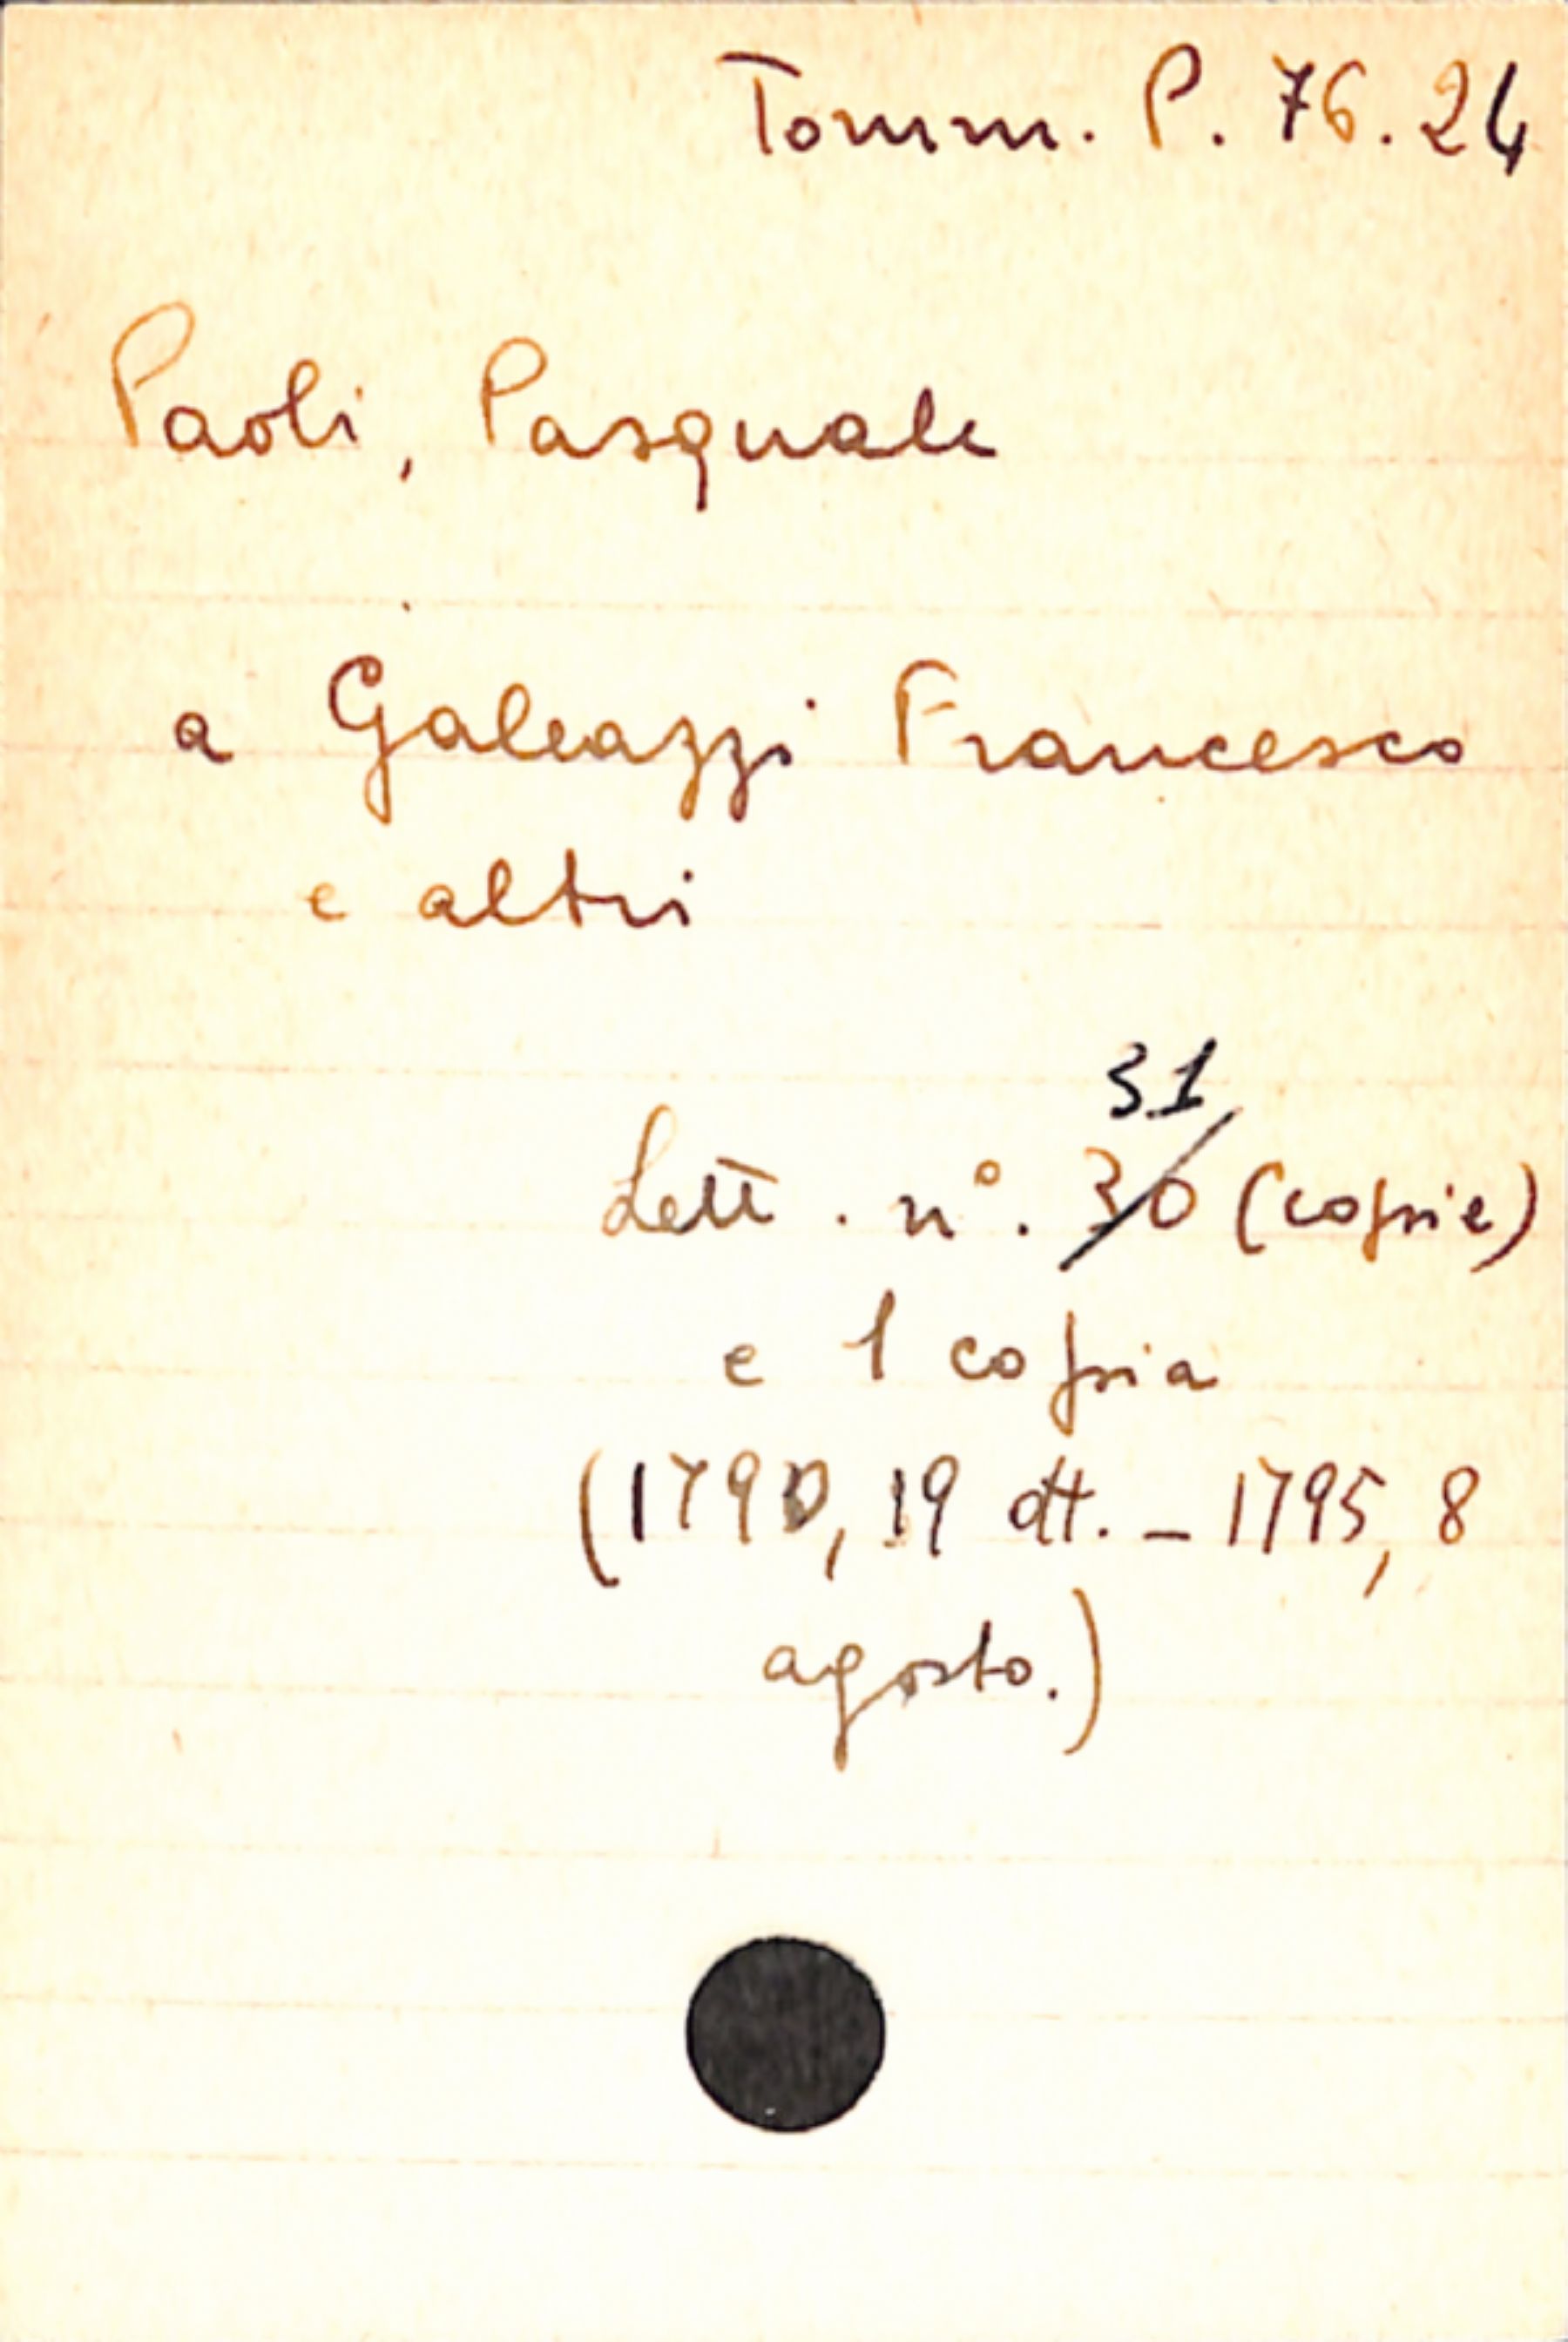 Tomm. P. 76. 24
Paoli, Pasquale
a Galeazzi Francesco
e altri
31
Lett. n°. 30 (copie)
e 1 copia
(1790, 19 ott. - 1795, 8
agosto.)